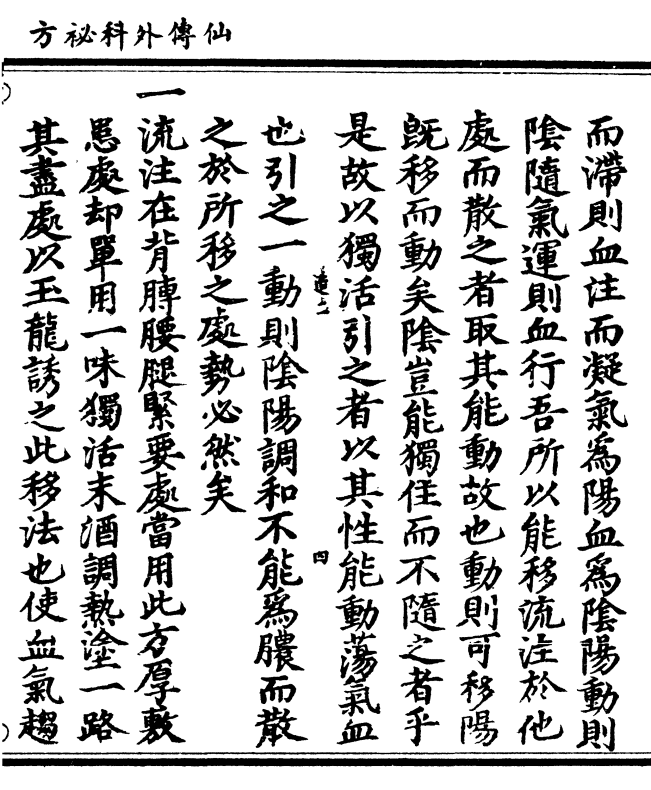 仙傳外科祕方
而滯則血注而凝氣為陽血為陰陽動則
陰隨氣運則血行吾所以能移流注於他
處而散之者取其能動故也動則可移陽
旣移而動矣陰豈能獨住而不隨之者乎
是故以獨活引之者以其性能動蕩氣血
也引之一動則陰陽調和不能為膿而散
之於所移之處勢必然矣
一流注在背膊腰腿緊要處當用此方厚敷
患處却單用一味獨活末酒調熱塗一路
其盡處以玉龍誘之此移法也使血氣趨
四